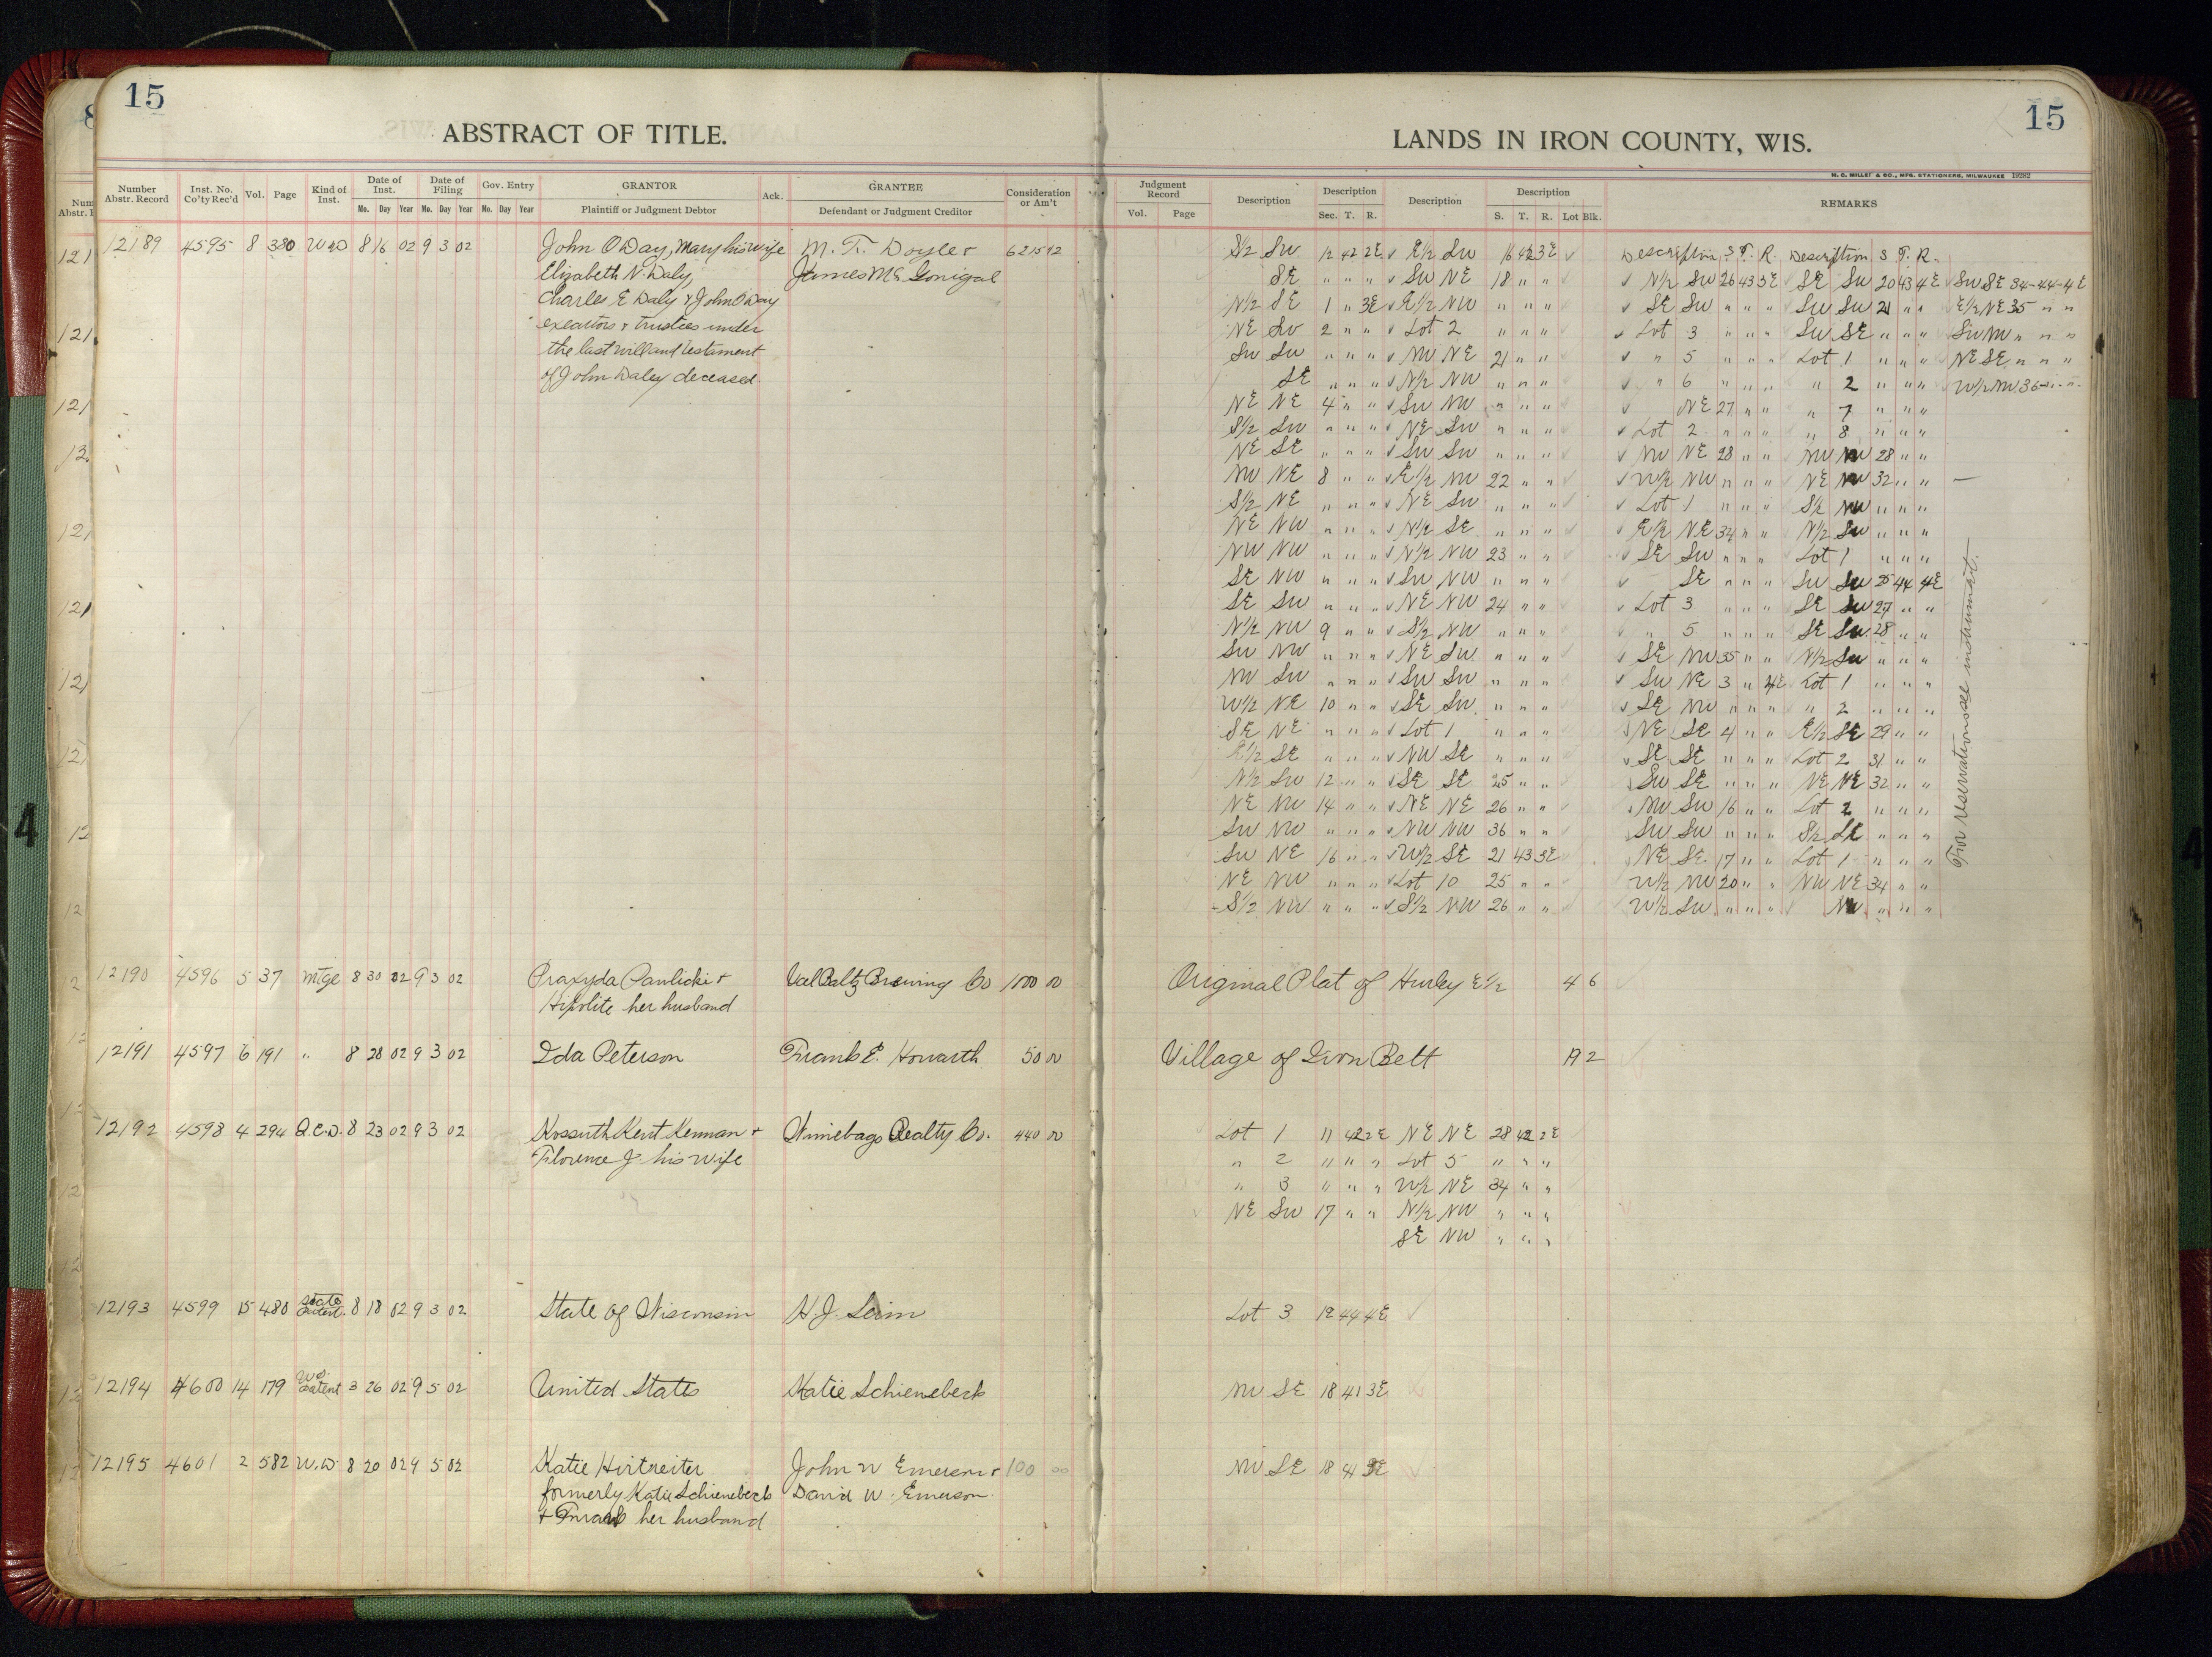 15
ABSTRACT OF TITLE.
Number Abstr. Record
Inst. No. Co'ty Rec'd
Vol.
Page
Kind of Inst.
Date of Inst.
Mo. Day Year
Date of Filing
Mo. Day Year
Gov. Entry
Mo. Day Year
GRANTOR
Plaintiff or Judgment Debtor
Ack.
GRANTEE
Defendant or Judgment Creditor
Consideration or Am't
12189 4595 8 380 W D 8 16 02 9 3 02 John O'Day, Mary his wife M. T. Doyle +
Elizabeth N. Daly, James Mc Gonigal
Charles E Daly & John O'Day
executors + trustees under
the last will and testament
of John Daley deceased.
12190 4596 5 37 Mtge 8 30 02 9 3 02 Praxyda Pawlicki + Val Baltz Brewing Co 1000 00
Hipolite her husband
12191 4597 6 191 " 8 28 02 9 3 02 Ida Peterson Frank E. Howarth 50 00
12192 4598 4 294 Q.C.D. 8 23 02 9 3 02 Kossuth Kent Kennan + Winnebago Realty Co. 440 00
Florence J. his wife
12193 4599 15 480 State Patent 8 18 02 9 3 02 State of Wisconsin
12194 4600 14 179 Patent 3 26 02 9 5 02 United States Katie Schienebeck
12195 4601 2 582 W.D. 8 20 02 9 5 02 Katie Hirtreiter John W Emerson + 100 00
formerly Katie Schienebeck David W. Emerson.
+ Frank her husband
15
LANDS IN IRON COUNTY, WIS.
H. C. MILLER & CO., MFG. STATIONERS, MILWAUKEE 19282
Judgment Record
Vol. Page
Description
Description
Sec. T. R.
Description
Description
S. T. R. Lot Blk.
REMARKS
Description S T. R. Description S T. R.
S½ SW 12 42 2E E½ SW 16 42 3E
SE " " " SW NE 18 " " N½ SW 26 43 3E SE SW 20 43 4E SW SE 34-44-4E
N½ SE 1 " 3E E½ NW " " " SE SW " " " SW SW 21 " " E½ NE 35 " "
NE SW 2 " " Lot 2 " " " Lot 3 " " " SW SE " " " SW NW " " "
SW SW " " " NW NE 21 " " " 5 " " " Lot 1 " " " NE SE " " "
SE " " " N½ NW " " " " 6 " " " " 2 " " " W½ NW 36 " "
NE NE 4 " " SW NW " " " NE 27 " " " 7 " " "
S½ SW " " " NE SW " " " Lot 2 " " " " 8 " " "
NE SE " " " SW SW " " " NW NE 28 " " NW NW 28 " "
NW NE 8 " " E½ NW 22 " " W½ NW " " " NE NW 32 " "
S½ NE " " " NE SW " " " Lot 1 " " " S½ NW " " "
NE NW " " " N½ SE " " " E½ NE 34 " " N½ SW " " "
NW NW " " " N½ NW 23 " " SE SW " " " Lot 1 " " "
SE NW " " " SW NW " " " SE " " " SW SW 25 44 4E
SE SW " " " NE NW 24 " " Lot 3 " " " SE SW 27 " "
N½ NW 9 " " S½ NW " " " " 5 " " " SE SW 28 " "
SW NW " " " NE SW " " " SE NW 35 " " N½ SW " " "
NW SW " " " SW SW " " " SW NE 3 " 4E Lot 1 " " "
W½ NE 10 " " SE SW " " " SE NW " " " " 2 " " "
SE NE " " " Lot 1 " " " NE SE 4 " " E½ SE 29 " "
E½ SE " " " NW SE " " " SE SE " " " Lot 2 31 " "
N½ SW 12 " " SE SE 25 " " SW SE " " " NE NE 32 " "
NE NW 14 " " NE NE 26 " " NW SW 16 " " Lot 2 " " "
SW NW " " " NW NW 36 " " SW SW " " " S½ SE " " "
SW NE 16 " " W½ SE 21 43 3E NE SE 17 " " Lot 1 " " "
NE NW " " " Lot 10 25 " " W½ NW 20 " " NW NE 34 " "
S½ NW " " " S½ NW 26 " " W½ SW " " " NW " " "
For reservations see instrument.
Original Plat of Hurley E½ 4 6
Village of Iron Belt 19 2
Lot 1 11 42 2E NE NE 28 42 2E
" 2 " " " Lot 5 " " "
" 3 " " " W½ NE 34 " "
NE SW 17 " " N½ NW " " "
SE NW " " "
Lot 3 12 44 4E
NW SE 18 41 3E
NW SE 18 41 3E
4